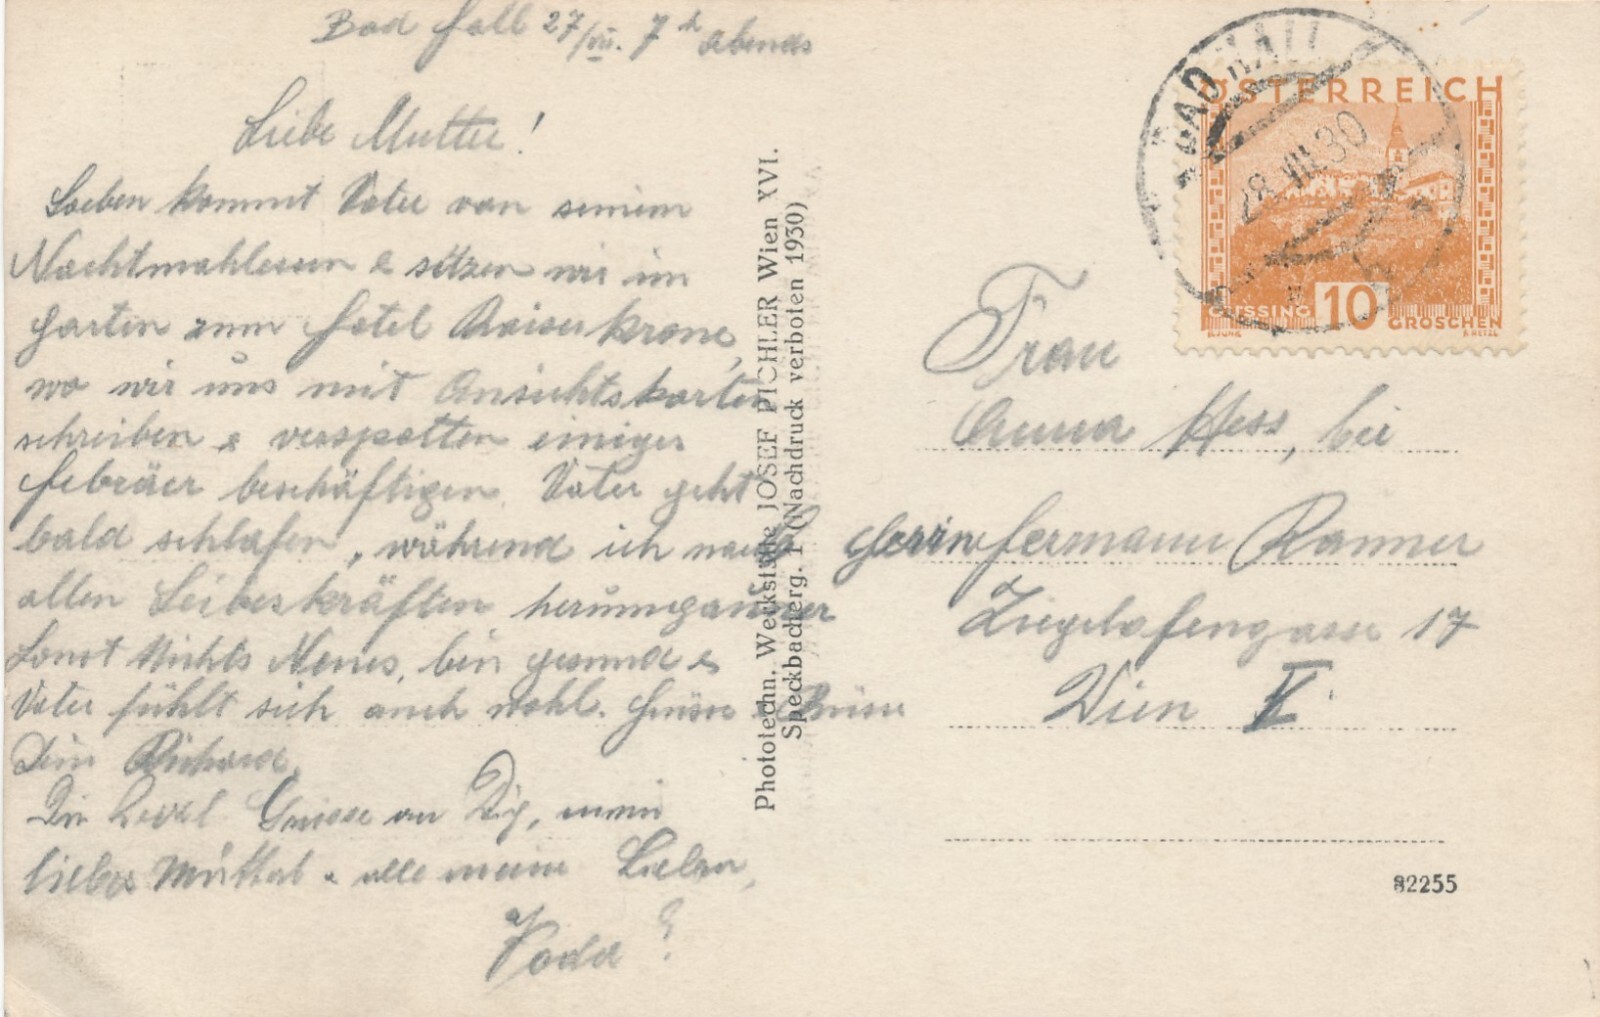 Bad Hall 27/VII. 7 h abends
Liebe Mutter!
Soeben kommt Vater von seinem
Nachtmahlessen & sitzen wir im
Garten zum Hotel Kaiserkrone,
wo wir uns mit Ansichtskarten
schreiben & verspotten einiger
Hebräer beschäftigen. Vater geht
bald schlafen, während ich nach
allen Leibeskräften herumgauner
Sonst Nichts Neues, bin gesund &
Vater fühlt sich auch wohl. Grüsse & Küsse
Dein Richard.
Grüsse an Dig, mein
liebes Mutterl & alle meine Lieben,
Voda
Phototechn. Werkstätte JOSEF PICHLER Wien XVI.
Speckbacherg. (Nachdruck verboten 1930)
BAD HALL
28.VII.30
ÖSTERREICH
GÜSSING 10 GROSCHEN
Frau
Anna Hess, bei
Herrn Hermann Ranner
Ziegelofengasse 17
Wien V.
82255